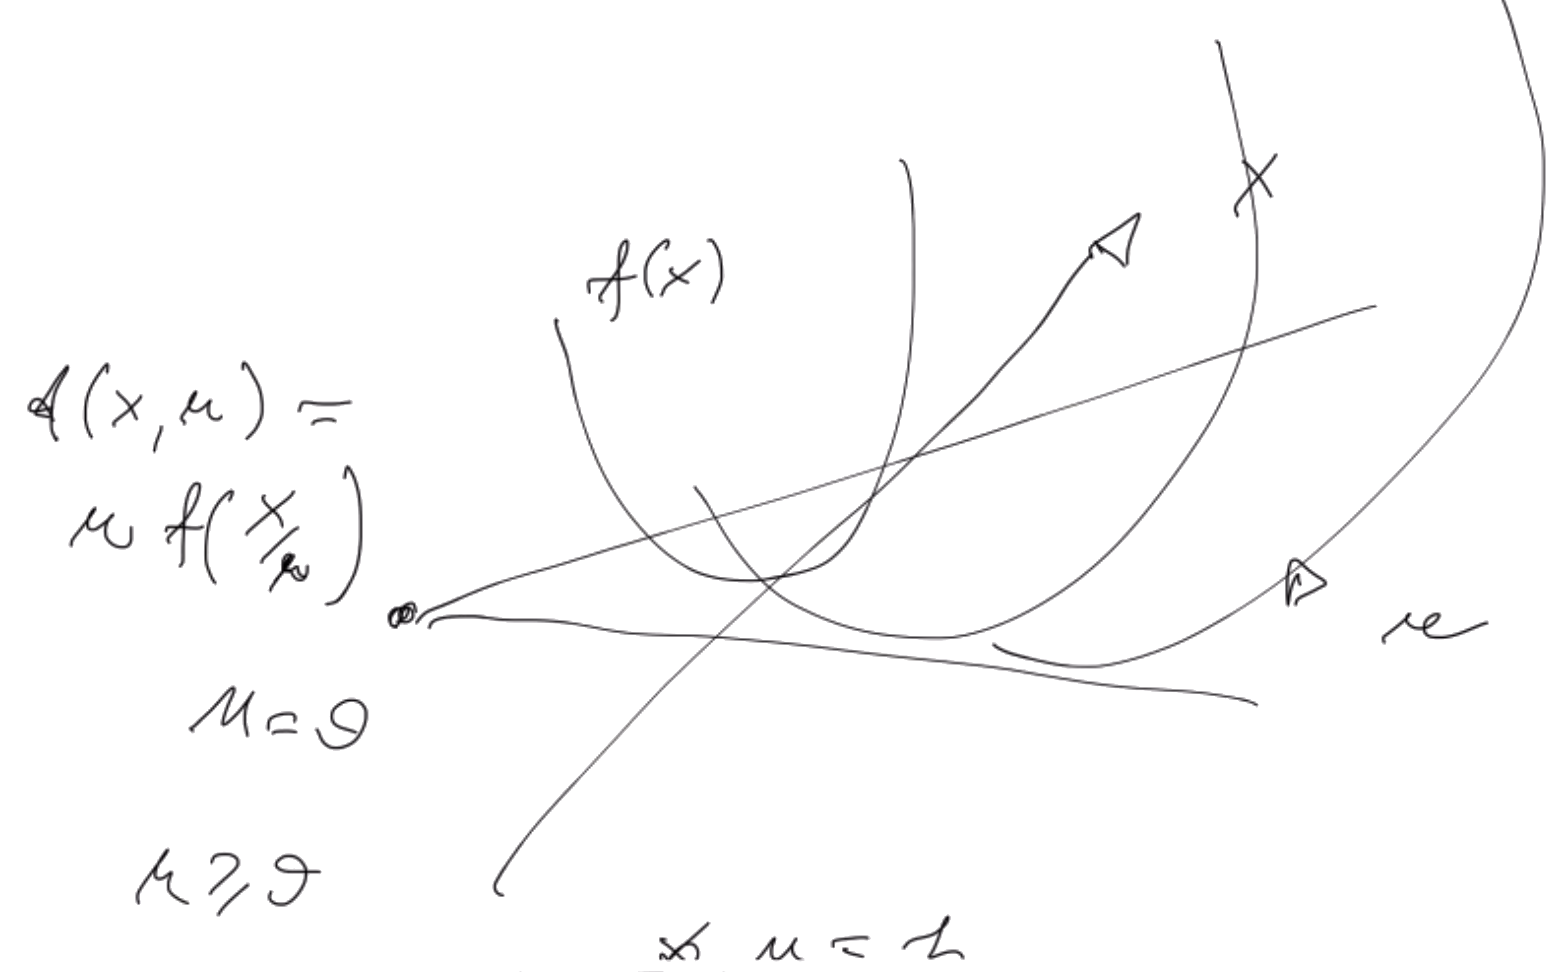 f(x)
x
f(x,μ) =
μ f(x/μ)
μ
μ=0
μ⩾0
μ =